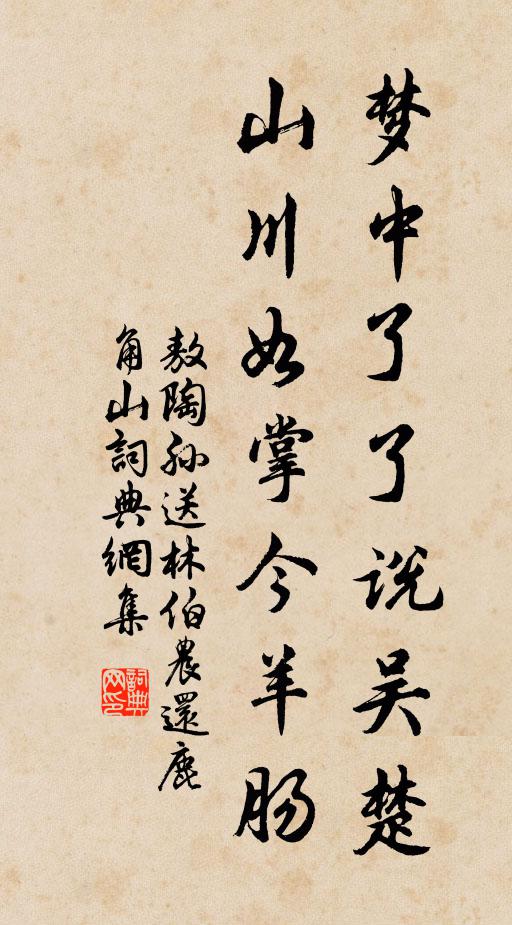 梦中了了说吴楚
山川如掌今羊肠
敖陶孙送林伯農還鹿
角山詞典網集
詞典網印